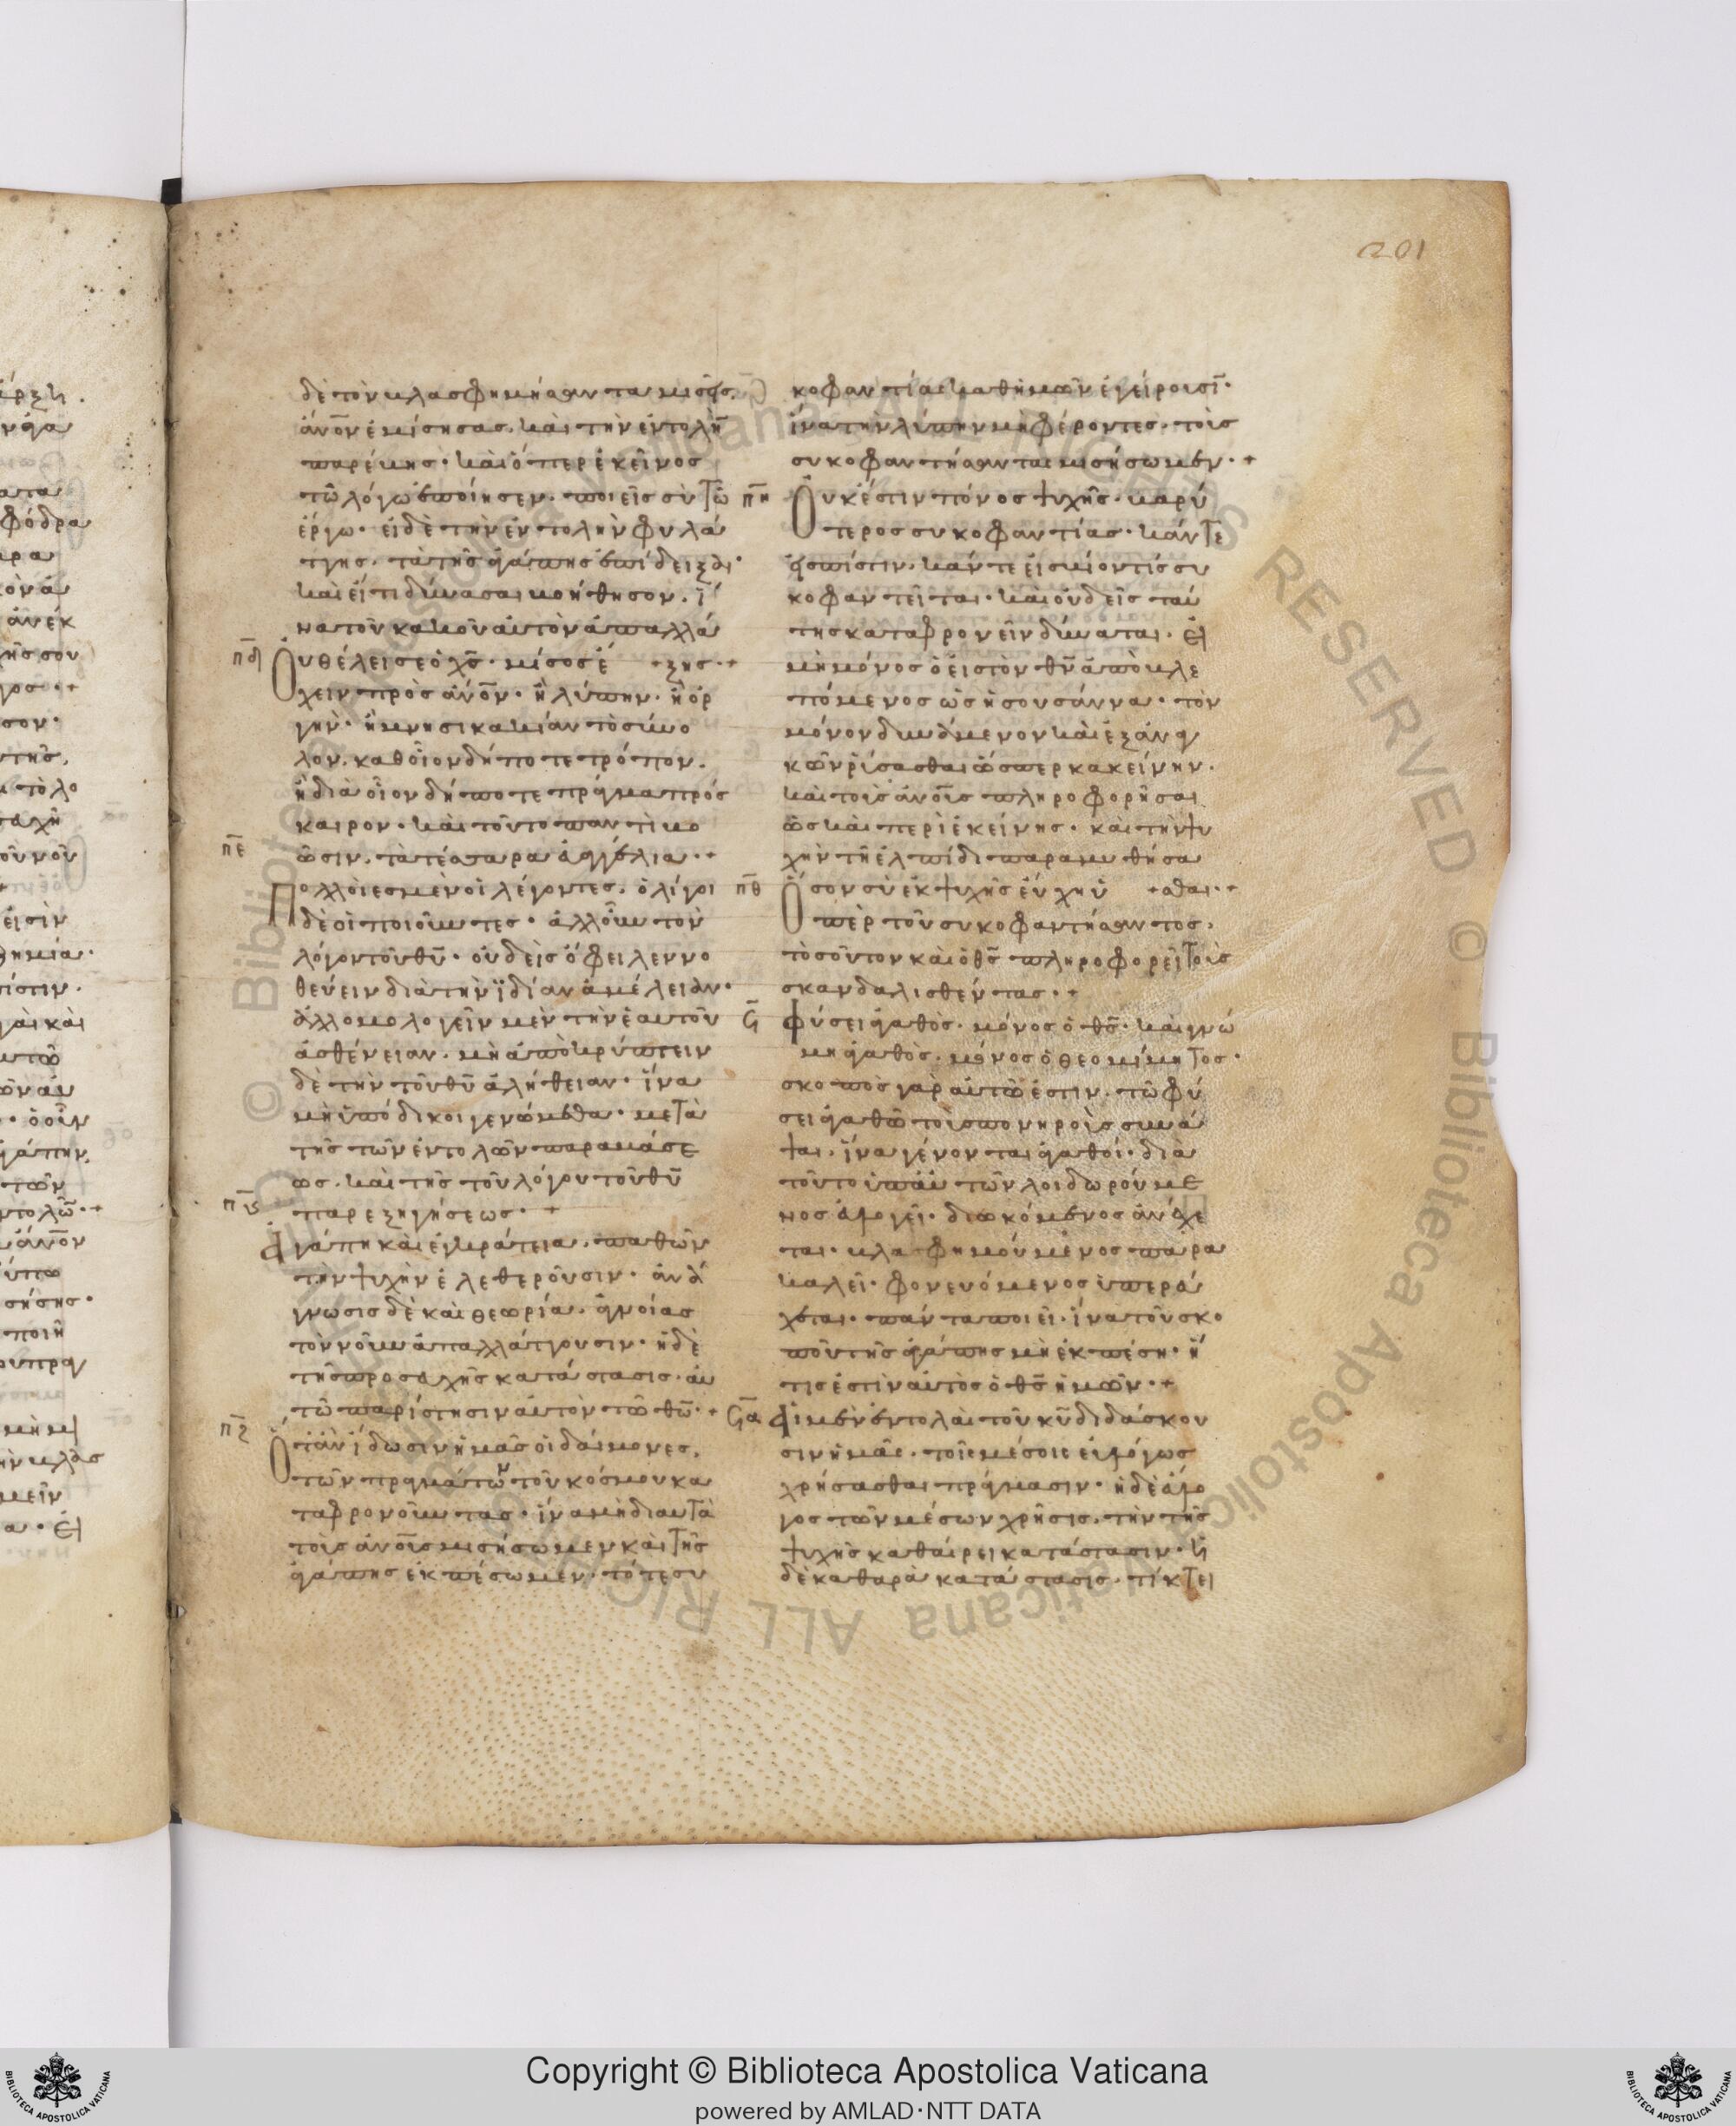 201
δὲ τὸν βλασφημήσαντα μισεῖς,
ἄνο̅ν ἐμίσησας. καὶ τὴν ἐντολὴν
παρέβης· καὶ ὅπερ ἐκεῖνος
τῶ λόγω ἐποίησεν, ποιεῖς σὺ τῶ
ἔργω· εἰ δὲ τὴν ἐντολὴν φυλά
ττης, τὰ τῆς ἀγάπης ἐπίδειξαι·
καὶ εἴ τι δύνασαι βοήθησον, ἵ
να τοῦ κακοῦ αὐτὸν ἀπαλλά
π̅δ Οὐ θέλει σε ὁ χς̅· μῖσος ἔ +ξης·+
χειν πρὸς ἄνο̅ν· ἢ λύπην· ἢ ὀρ
γὴν· ἢ μνησικακίαν τὸ σύνο
λον, καθ' οἷον δήποτε τρόπον.
ἢ διὰ οἷον δήποτε πρᾶγμα πρός
καιρον· καὶ τοῦτο παντὶ βο
π̅ε ῶσιν, τὰ τέσσαρα εὐαγγέλια·+
Πολλοὶ ἐσμὲν οἱ λέγοντες, ὀλίγοι
δὲ οἱ ποιοῦντες· ἀλλ' οὖν τὸν
λόγον τοῦ θυ̅· οὐδεὶς ὤφειλεν νο
θεύειν διὰ τὴν ἰδίαν ἀμέλειαν·
ἀλλ' ὁμολογεῖν μὲν τὴν ἑαυτοῦ
ἀσθένειαν, μὴ ἀποκρύπτειν
δὲ τὴν τοῦ θυ̅ ἀλήθειαν· ἵνα
μὴ ὑπόδικοι γενώμεθα· μετὰ
τῆς τῶν ἐντολῶν παραβάσε
ως, καὶ τῆς τοῦ λόγου τοῦ θυ̅
π̅ς παρεξηγήσεως·+
Ἀγάπη καὶ ἐγκράτεια, παθῶν
τὴν ψυχὴν ἐλεθεροῦσιν· ἀνά
γνωσις δὲ καὶ θεωρία, ἀγνοίας
τὸν νοῦν ἀπαλλάττουσιν· ἡ δὲ
τῆς προσευχῆς κατάστασις, αὐ
τῶ παρίστησιν αὐτὸν τῶ θω̅·+
π̅ζ Ὅταν ἴδωσιν ἡμᾶς οἱ δαίμονες,
τῶν πραγμάτων τοῦ κόσμου κα
ταφρονοῦντας· ἵνα μὴ δι' αὐτὰ
τοὺς ἀνο̅υς μισήσωμεν καὶ τῆς
ἀγάπης ἐκπέσωμεν· τότε συ
κοφαντίας καθ' ἡμῶν ἐγείρουσι·
ἵνα τὴν λύπην μὴ φέροντες, τοὺς
συκοφαντήσαντας μισήσωμεν·+
π̅η Οὐκ ἔστιν πόνος ψυχῆς, βαρύ
τερος συκοφαντίας· κἄν τε
εἰς πίστιν, κἄν τε εἰς βίον τίς συ
κοφαντεῖται· καὶ οὐδεὶς ταύ
της καταφρονεῖν δύναται, εἰ
μὴ μόνος ὁ εἰς τὸν θν̅ ἀποβλε
πόμενος ὡς ἡ σουσάννα· τὸν
μόνον δυνάμενον καὶ ἐξ ἀναγ
κῶν ῥύσασθαι ὥσπερ κακείνην.
καὶ τοὺς ἀνο̅υς πληροφορῆσαι
ὡς καὶ περὶ ἐκείνης· καὶ τὴν ψυ
χὴν τῆ ἐλπίδι παραμυθήσα
π̅θ Ὅσον σὺ ἐκ ψυχῆς εὔχη ὑ +σθαι·+
πὲρ τοῦ συκοφαντήσαντος,
τοσοῦτον καὶ ὁ θς̅ πληροφορεῖ τοὺς
σκανδαλισθέντας·+
ϟ̅ Φύσει ἀγαθὸς, μόνος ὁ θς̅· καὶ γνώ
μη ἀγαθὸς, μόνος ὁ θεομίμητος·
σκοπὸς γὰρ αὐτῶ ἐστιν, τῶ φύ
σει ἀγαθῶ τοὺς πονηροὺς συνά
ψαι, ἵνα γένονται ἀγαθοί· διὰ
τοῦτο ὑπ' αὐτῶν λοιδωρούμε
νος εὐλογεῖ· διωκόμενος ἀνέχε
ται· βλασφημούμενος παρα
καλεῖ· φονευόμενος ὑπερεύ
χεται· πάντα ποιεῖ, ἵνα τοῦ σκο
ποῦ τῆς ἀγάπης μὴ ἐκπέση· ἥ
τις ἐστὶν αὐτὸς ὁ θς̅ ἡμῶν·+
ϟ̅α Αἱ μὲν ἐντολαὶ τοῦ κυ̅ διδάσκου
σιν ἡμᾶς, τοῖς μέσοις εὐλόγως
χρήσασθαι πράγμασιν· ἡ δὲ εὔλο
γος τῶν μέσων χρῆσις, τὴν τῆς
ψυχῆς καθαίρει κατάστασιν· ἡ
δὲ καθαρὰ κατάστασις, τίκτει
Copyright © Biblioteca Apostolica Vaticana
powered by AMLAD・NTT DATA